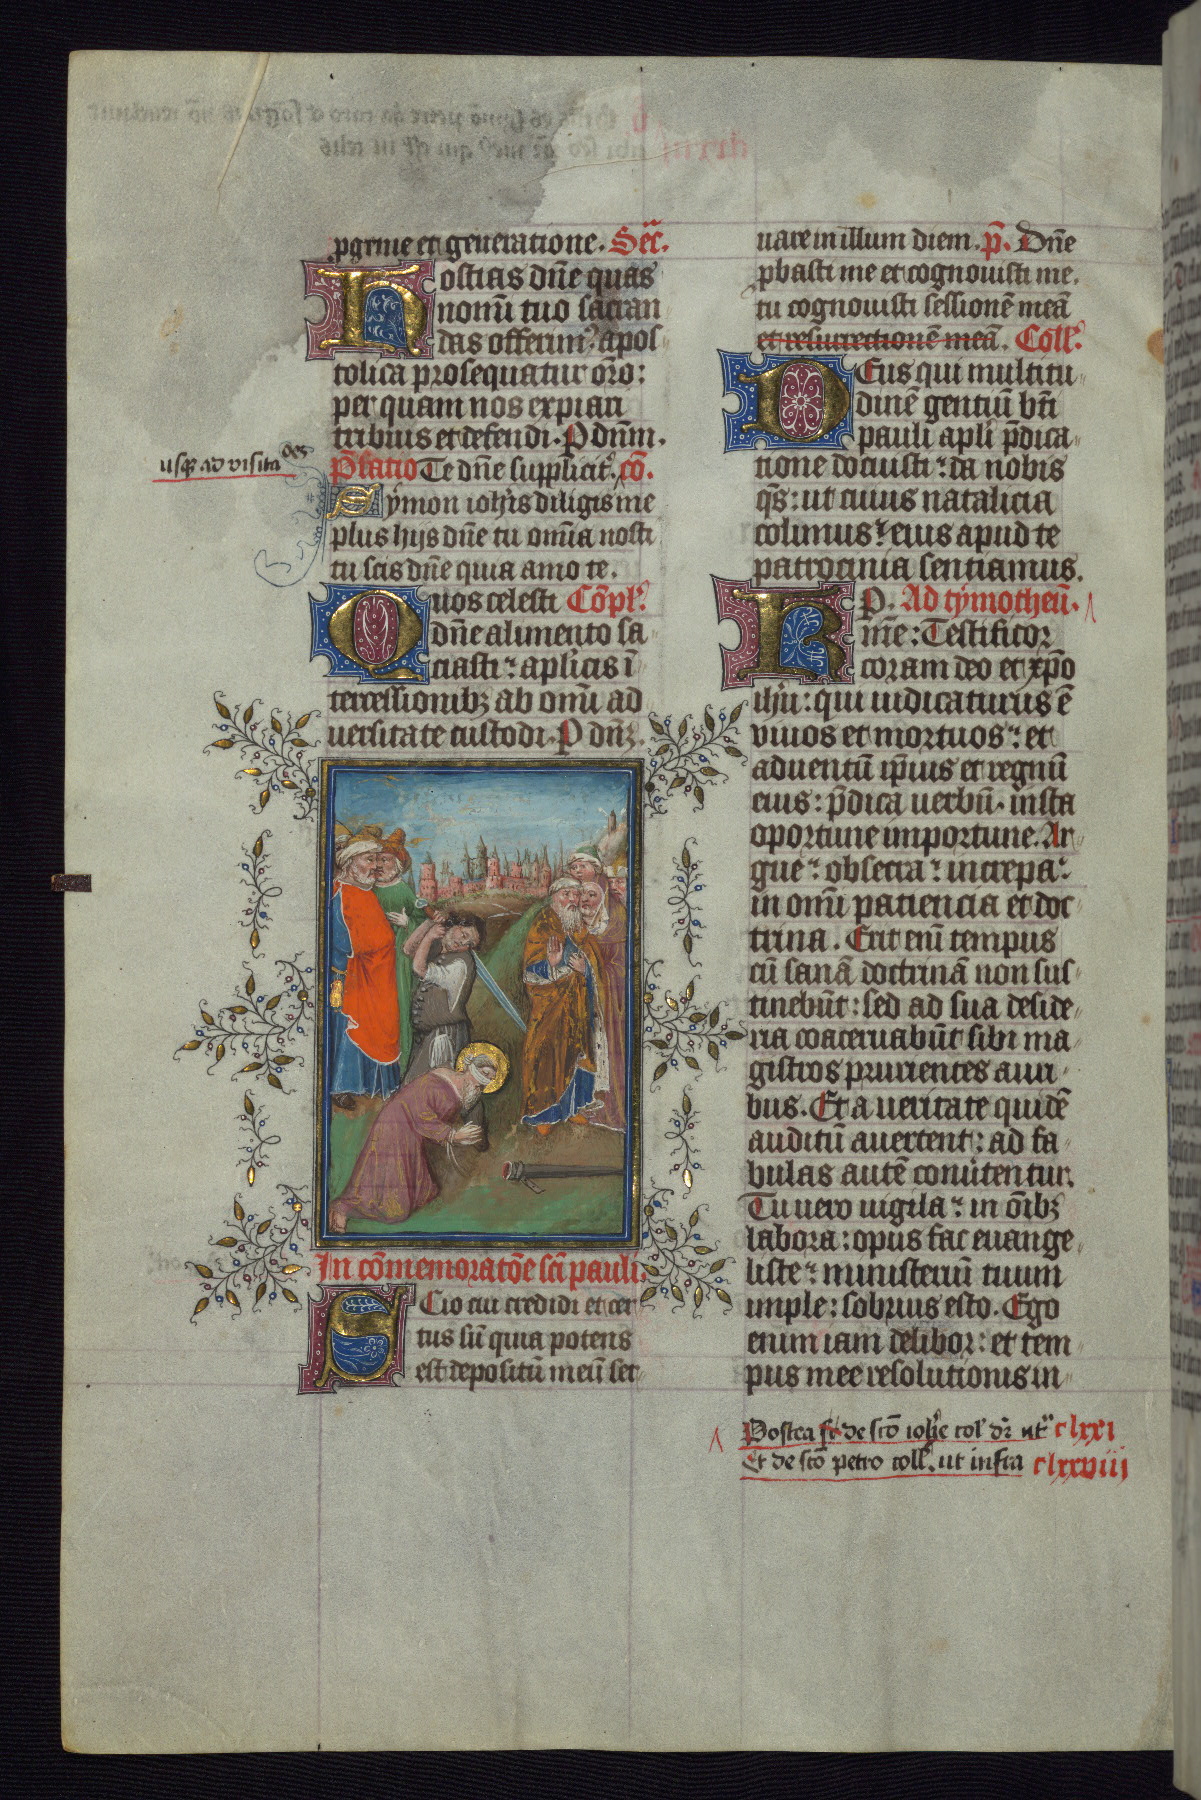 pgenie et generatione. Secͣ.
Hostias dn̄e quas
nomī tuo sacran
das offerimꝰ: apoł
tolica prosequatur or̄o:
per quam nos expiari
tribuis et defendi. P dnm̄.
usqꝫ ad visita des
P̄fatio Te dn̄e supplicitᵉ. cō.
Symon ioh̄is diligis me
plus hijs dn̄e tu omīa nosti
tu scis dn̄e quia amo te.
Quos celesti Cōpłᵉ.
dn̄e alimento sa
ciasti: aplicis ī
tercessionibꝫ ab omī ad
uersitate custodi. P dnm̄.
In cōmemoratōe scī pauli.
Scio cui credidi et cer
tus sū quia potens
est depositū meū ser
uare in illum diem. p̄. Dn̄e
pbasti me et cognouisti me.
tu cognouisti sessionē meā
et resurrectionē meā. Collᵃ.
Deus qui multitu
dinē gentiū bt̄i
pauli apłi p̄dica
tione docuisti: da nobis
q̄s: ut cuius natalicia
colimus: eius apud te
patrocinia sentiamus.
P. Ad tymotheū.
Kme: Testificor
coram deo et xp̄o
ihū: qui iudicaturus ē
viuos et mortuos: et
aduentū ip̄ius et regnū
eius: p̄dica uerbū. insta
oportune importune. Ar
gue: obsecra: increpa:
in omī paciencia et doc
trina. Erit enī tempus
cū sanā doctrinā non sus
tinebūt: sed ad sua deside
ria coaceruabūt sibi ma
gistros prurientes auri
bus. Et a ueritate quidē
auditū auertent: ad fa
bulas autē conūtentur.
Tu uero uigila: in oībꝫ
labora: opus fac euange
liste: ministeriū tuum
imple: sobrius esto. Ego
enim iam delibor: et tem
pus mee resolutionis in
Postea de scō ioh̄e coł dr̄ ut clxxi
Et de scō petro coll. ut infra clxxviii